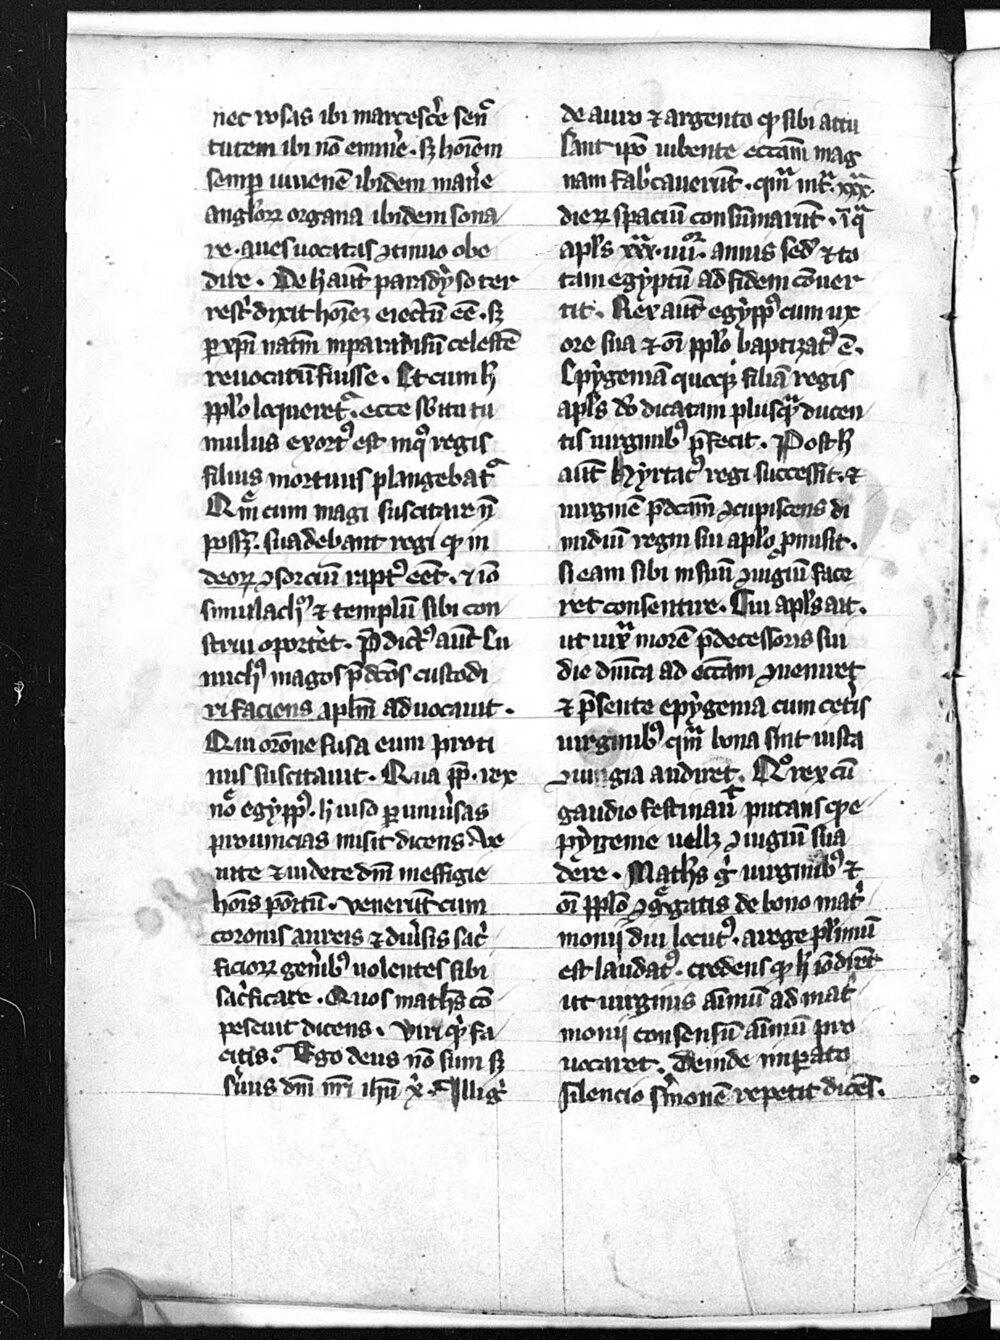 nec rosas ibi marcescẽ senc̄
tutem ibi nō eminẽ . sꝫ hoīem
semꝑ iuuenē ibidem manẽe
angłoꝝ organa ibidem sona
re . aues uocatas ↄtinuo obe
dire . De h̄ aut̄ paradẏso ter
restͥ dixit hoīeꝫ eiectū eē . sꝫ
ꝑ xp̄i natīm in paradisū celestē
reuocatū fuisse . Et cum h̄
pp̄lo loqueret᷑ . ecce sb̓ito tu
mulus exort᷒ est in qͦ regis
filius mortuus plangebat᷑
Qm̄ cum magi suscitare n̄
possꝫ . suadebant regi ꝙ in
deoꝝ ↄsorciū rapt᷒ eēt . ⁊ iō
simulachͦ᷒ ⁊ templū sibi con
strui oporteret . P̄dict᷒ aut̄ Eu
nuch᷒ magos p̄dc̄os custodi
ri faciens apl̄m aduocauit .
Qui orōne fusa eum proti
nus suscitauit . Qua ꝓp̄ . rex
nōe egẏpp᷒ . h̄ uiso ꝑ uniũsas
prouincias misit dicens Ve
nite ⁊ uidete dn̄i in effigie
hoīs portū . Venerūt cum
coronis aureis ⁊ diũsis sacͥ
ficioꝝ genẽib᷒ uolentes sibi
sacͥficare . Quos math̄s cō
pescuit dicens . Viri qͥd fa
citis . Ego deus nō sum sꝫ
s̃uus dn̄i mͥ ih̄u xͥ . Illi gͥ
de auro ⁊ argento ꝙ sibi attu
lant ip̄o iubente eccām mag
nam fabͥcauerūt . qm̄ infͣ . xxxͣ .
dieꝝ spaciū consūmarūt . ī qͣ
apl̄s xxxͣ . iiiͦͬ . annis sed̄ ⁊ to
tam egẏptū ad fidem cōuer
tit . Rex aut̄ egẏpp᷒ cum ux
ore sua ⁊ oī pp̄lo baptizat᷒ ē .
Epẏgeniā quoqꝫ filiā regis
apl̄s dō dicatam plusqͣ ducen
tis uirginib᷒ p̄fecit . Post h̄
aut̄ hẏrtac᷒ regi successit . ⁊
uirginē p̄dc̄am ↄcupiscens di
midiū regni sui aplō ꝓmisit .
si eam sibi in suū ↄiugiū face
ret consentire . Cui apl̄s ait .
ut iuxͣ morē p̄decessoris sui
die dn̄ica ad eccām ↄueniret
⁊ p̄sente epẏgenia cum cetͥis
uirginib᷒ qm̄ bona sint iusta
ↄiungia audiret . Qͦ rex cū
gaudio festinauͭ putans ꝙ e
pẏgenie uellꝫ ↄiugiū sua
dere . Math̄s gͥ uirginib᷒ ⁊
oī pp̄lo ↄgͤgatis de bono matͥ
monij diu locut᷒ . a rege pl̄imū
est laudat᷒ . credens ꝙ h̄ iō dixēt
ut uirginis aīmū ad matͥ
monij consensū aīmū pro
uocaret . Deinde imperato
silencio s̃monē repetit dicēs .